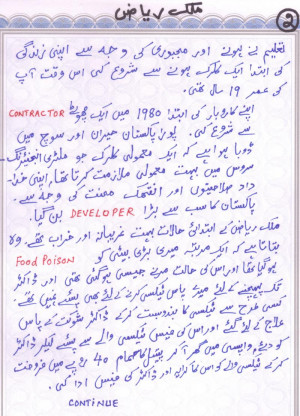 ملک ریاض
2
تعلیم نے ہونے اور مجبوری کی وجہ سے اپنی زندگی
کی ابتدا ایک کلرک ہونے سے شروع کی اس وقت آپ
کی عمر 19 سال تھی۔
اپنے کاروبار کی ابتدا 1980 میں ایک چھوٹے CONTRACTOR
سے شروع کی۔ پورا پاکستان حیران اور سوچ میں
ڈوبا ہوا ہے کہ ایک معمولی کلرک جو ملٹری انجینئرنگ
سروس میں بہت معمولی ملازمت کرتا تھا، اپنی خدا
داد صلاحیتوں اور انتھک محنت کی وجہ سے۔
پاکستان کا سب سے بڑا DEVELOPER بن گیا۔
ملک ریاض کے ابتدائی حالات بہت غریبانہ اور خراب تھے۔ وہ
بتاتا ہے کہ ایک مرتبہ میری بڑی بیٹی کو Food Poison
ہو گیا تھا اور اس کی حالت مرنے جیسی ہو گئی تھی اور ڈاکٹر
تک پہنچنے کے لئے میرے پاس ٹیکسی کرنے کے لئے بھی پیسے نہیں تھے۔
کسی طرح سے ٹیکسی کا بندوبست کر کے ڈاکٹر شوکت کے پاس
علاج کے لئے گئے اور اس کی فیس ٹیکسی والے سے پیسے لیکر ڈاکٹر
کو دیئے، واپسی میں گھر آ کر پیتل کا حمام 40 روپے میں فروخت
کر کے ٹیکسی والے کو اس کا کرایہ اور ڈاکٹر کی فیس ادا کی۔
CONTINUE